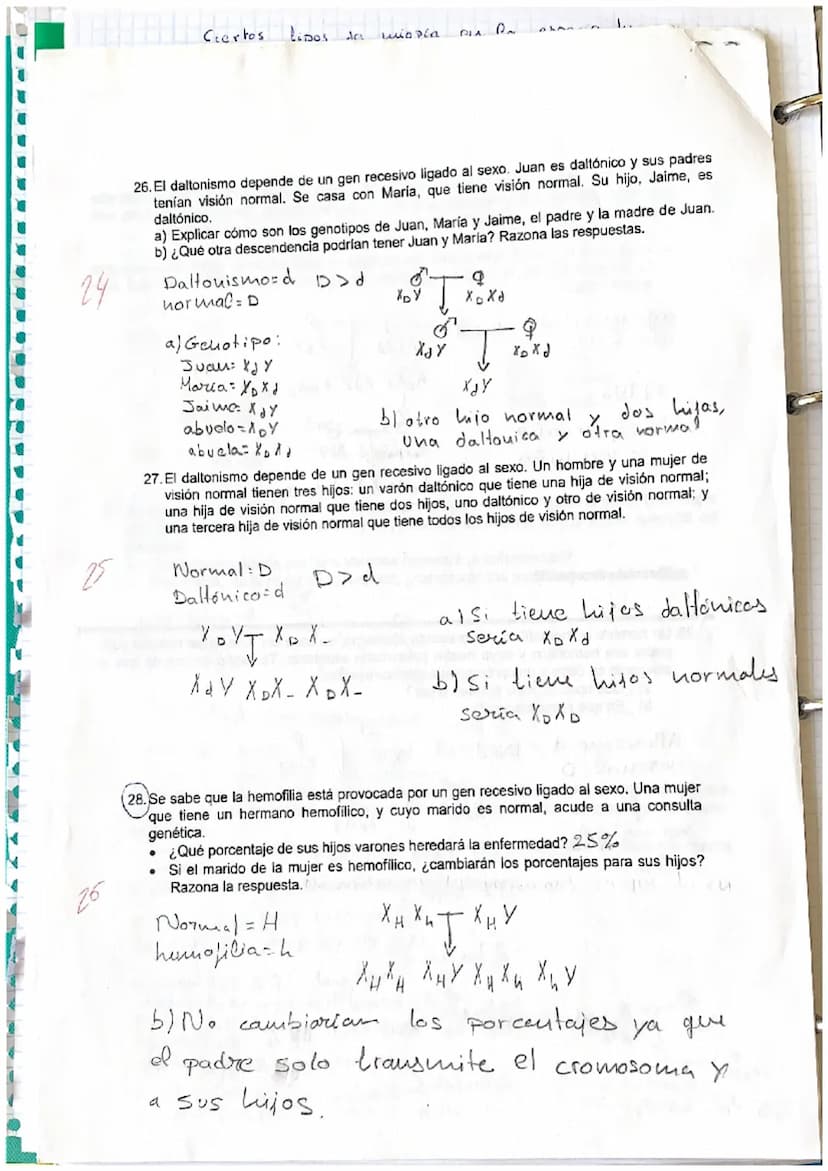 Ciertos tipos de miopía
26. El daltonismo depende de un gen recesivo ligado al sexo. Juan es daltónico y sus padres
tenían visión normal. Se casa con María, que tiene visión normal. Su hijo, Jaime, es
daltónico.
a) Explicar cómo son los genotipos de Juan, María y Jaime, el padre y la madre de Juan.
b) ¿Qué otra descendencia podrían tener Juan y María? Razona las respuestas.
24
Daltonismo=d D>d
normal=D
♂ ♀
XDY XDXd
♂ ♀
XdY XDXd
XdY
a) Genotipo:
Juan: XdY
María= XDXd
Jaime: XdY
abuelo=XDY
abuela= XDXd
b) otro hijo normal y dos hijas,
una daltonica y otra normal
27. El daltonismo depende de un gen recesivo ligado al sexo. Un hombre y una mujer de
visión normal tienen tres hijos: un varón daltónico que tiene una hija de visión normal;
una hija de visión normal que tiene dos hijos, uno daltónico y otro de visión normal; y
una tercera hija de visión normal que tiene todos los hijos de visión normal.
25
Normal: D D>d
Daltónico=d
XDY XDX-
XdY XDX- XDX-
a) Si tiene hijos daltónicos
sería XDXd
b) Si tiene hijos normales
sería XDXD
28. Se sabe que la hemofilia está provocada por un gen recesivo ligado al sexo. Una mujer
que tiene un hermano hemofílico, y cuyo marido es normal, acude a una consulta
genética.
• ¿Qué porcentaje de sus hijos varones heredará la enfermedad? 25%
• Si el marido de la mujer es hemofílico, ¿cambiarán los porcentajes para sus hijos?
Razona la respuesta.
26
Normal = H
hemofilia=h
XHXh XHY
XHXH XHY XHXh XhY
b) No cambiarían los porcentajes ya que
el padre solo transmite el cromosoma y
a sus hijos.